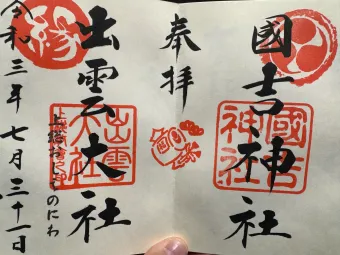 國吉神社
國吉神社
奉拝
出雲大社
出雲大社
上総
のにわ
令和三年七月三十一日